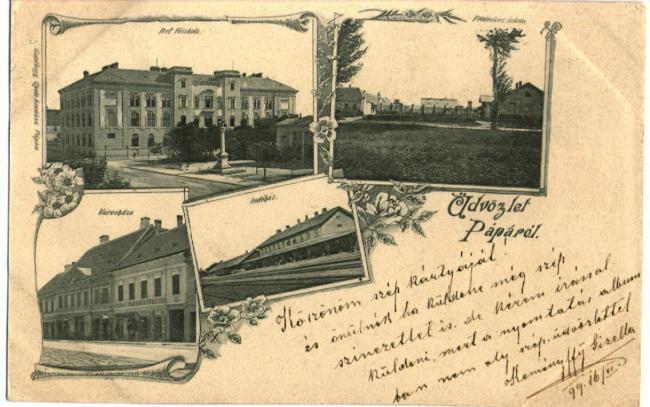 Ref. Főiskola.
Földmíves iskola.
Városháza
Indóház.
Üdvözlet
Pápáról.
Köszönöm szép kártyáját!
és örülnék ha küldene még szép
szinezettel is. de kérem írással
küldeni, mert a nyomtatás, album
ban nem oly szép. üdvözlettel
Gizella
99. 16/VI.